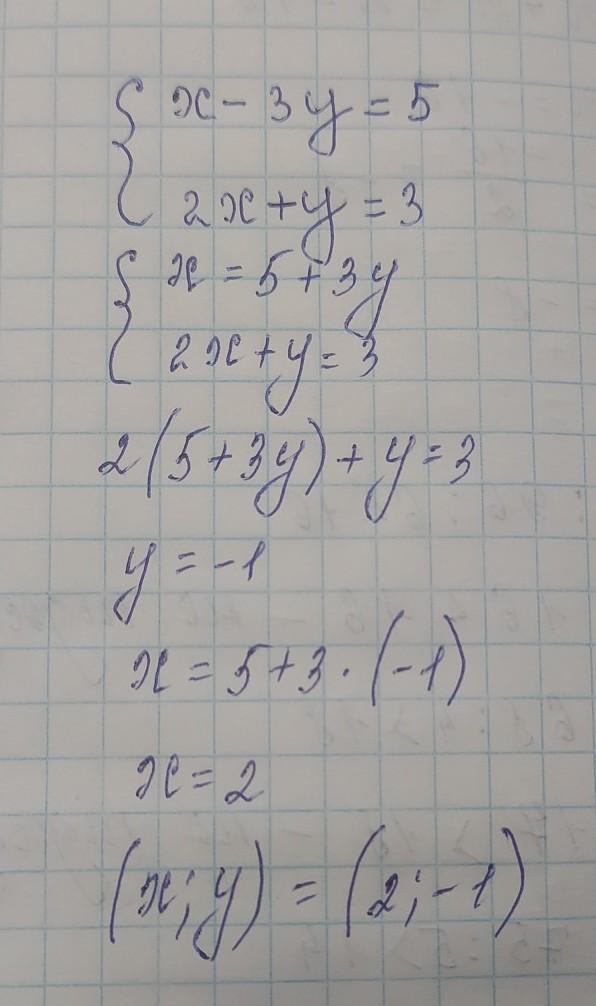 x - 3y = 5
2x + y = 3
x = 5 + 3y
2x + y = 3
2(5 + 3y) + y = 3
y = -1
x = 5 + 3 · (-1)
x = 2
(x; y) = (2; -1)